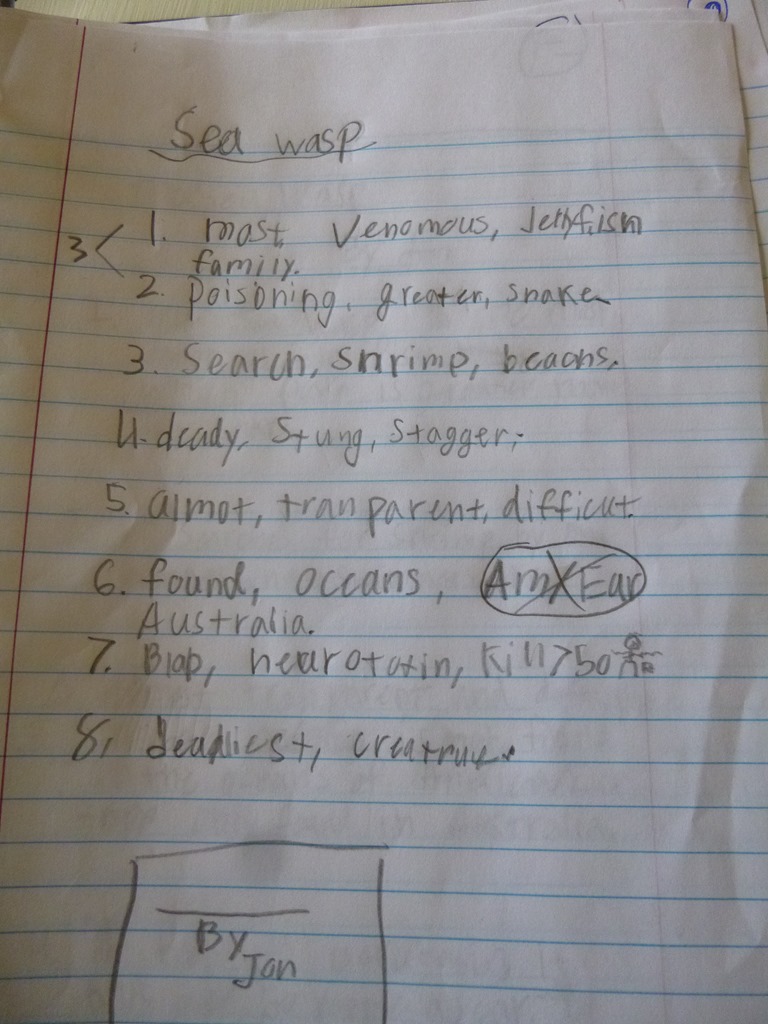 Sea wasp
3 < 1. most, Venomous, Jellyfish
family.
2. poisoning, greater, snake
3. Search, shrimp, beaons.
4. deady, Stung, Stagger,
5. almot, tranparent, difficut.
6. found, occans,
Australia.
7. Blob, neurotoxin, Kill > 50
8. deadliest, creatrue.
By
Jan